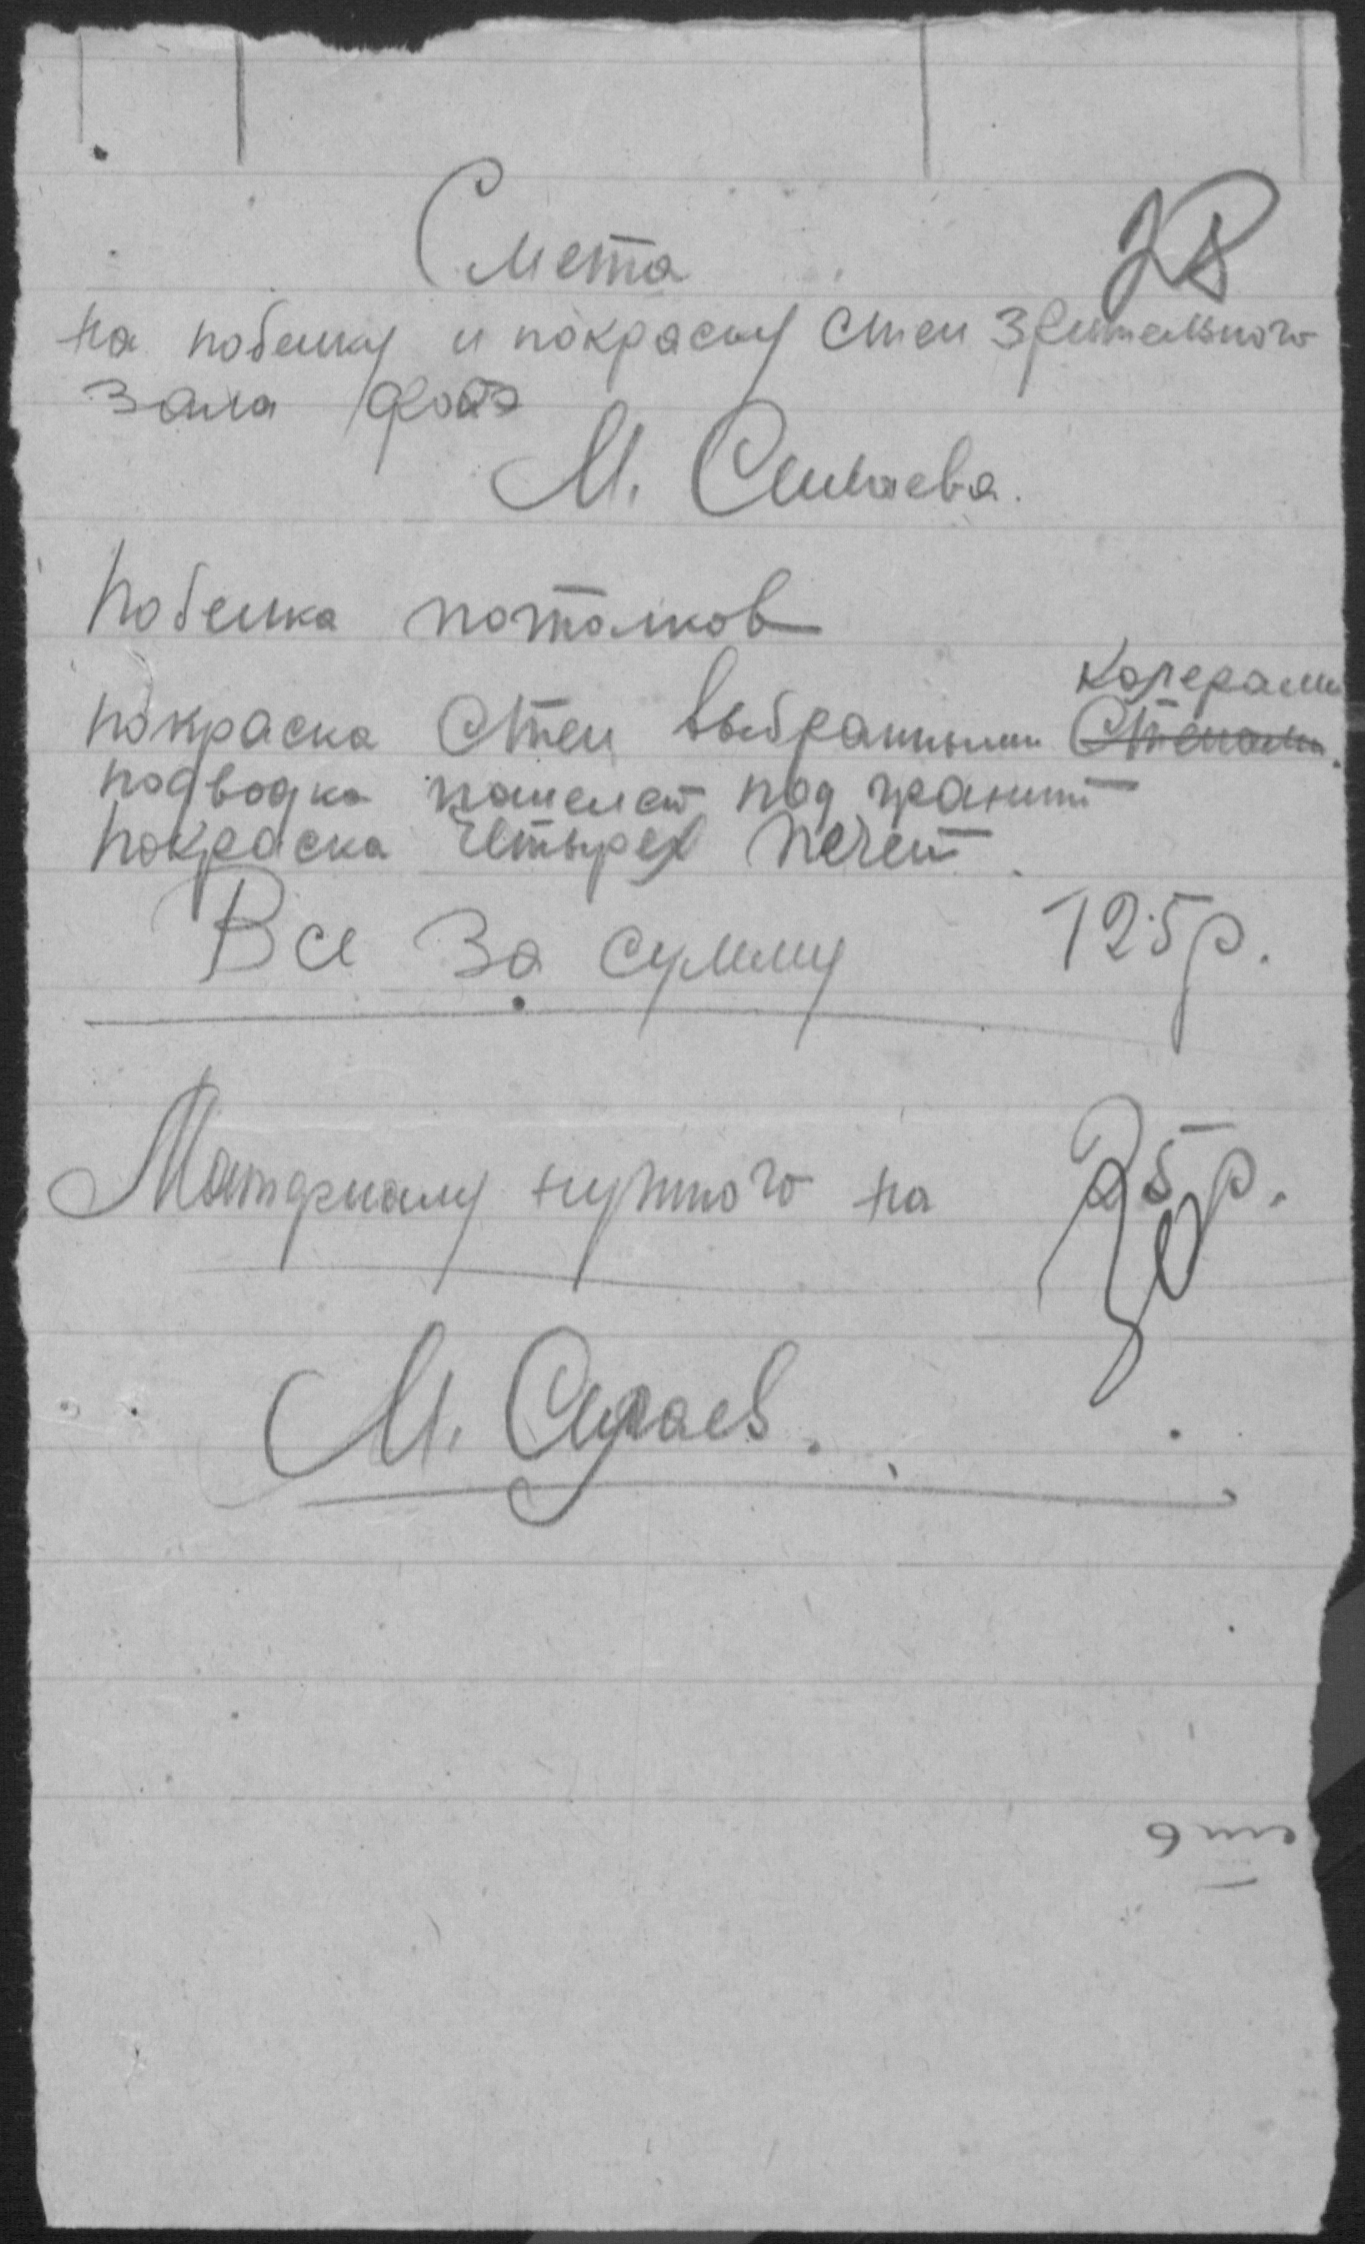 Смета
28
на побелку и покраску стен зрительного
зала фойэ
М. Силаева.
Побелка потолков
колерами
покраска стен выбранными стенами.
подводка панелей под гранит
покраска четырех печей
Все за сумму 125 р.
Материалу нужного на 25 р.
30
М. Силаев.